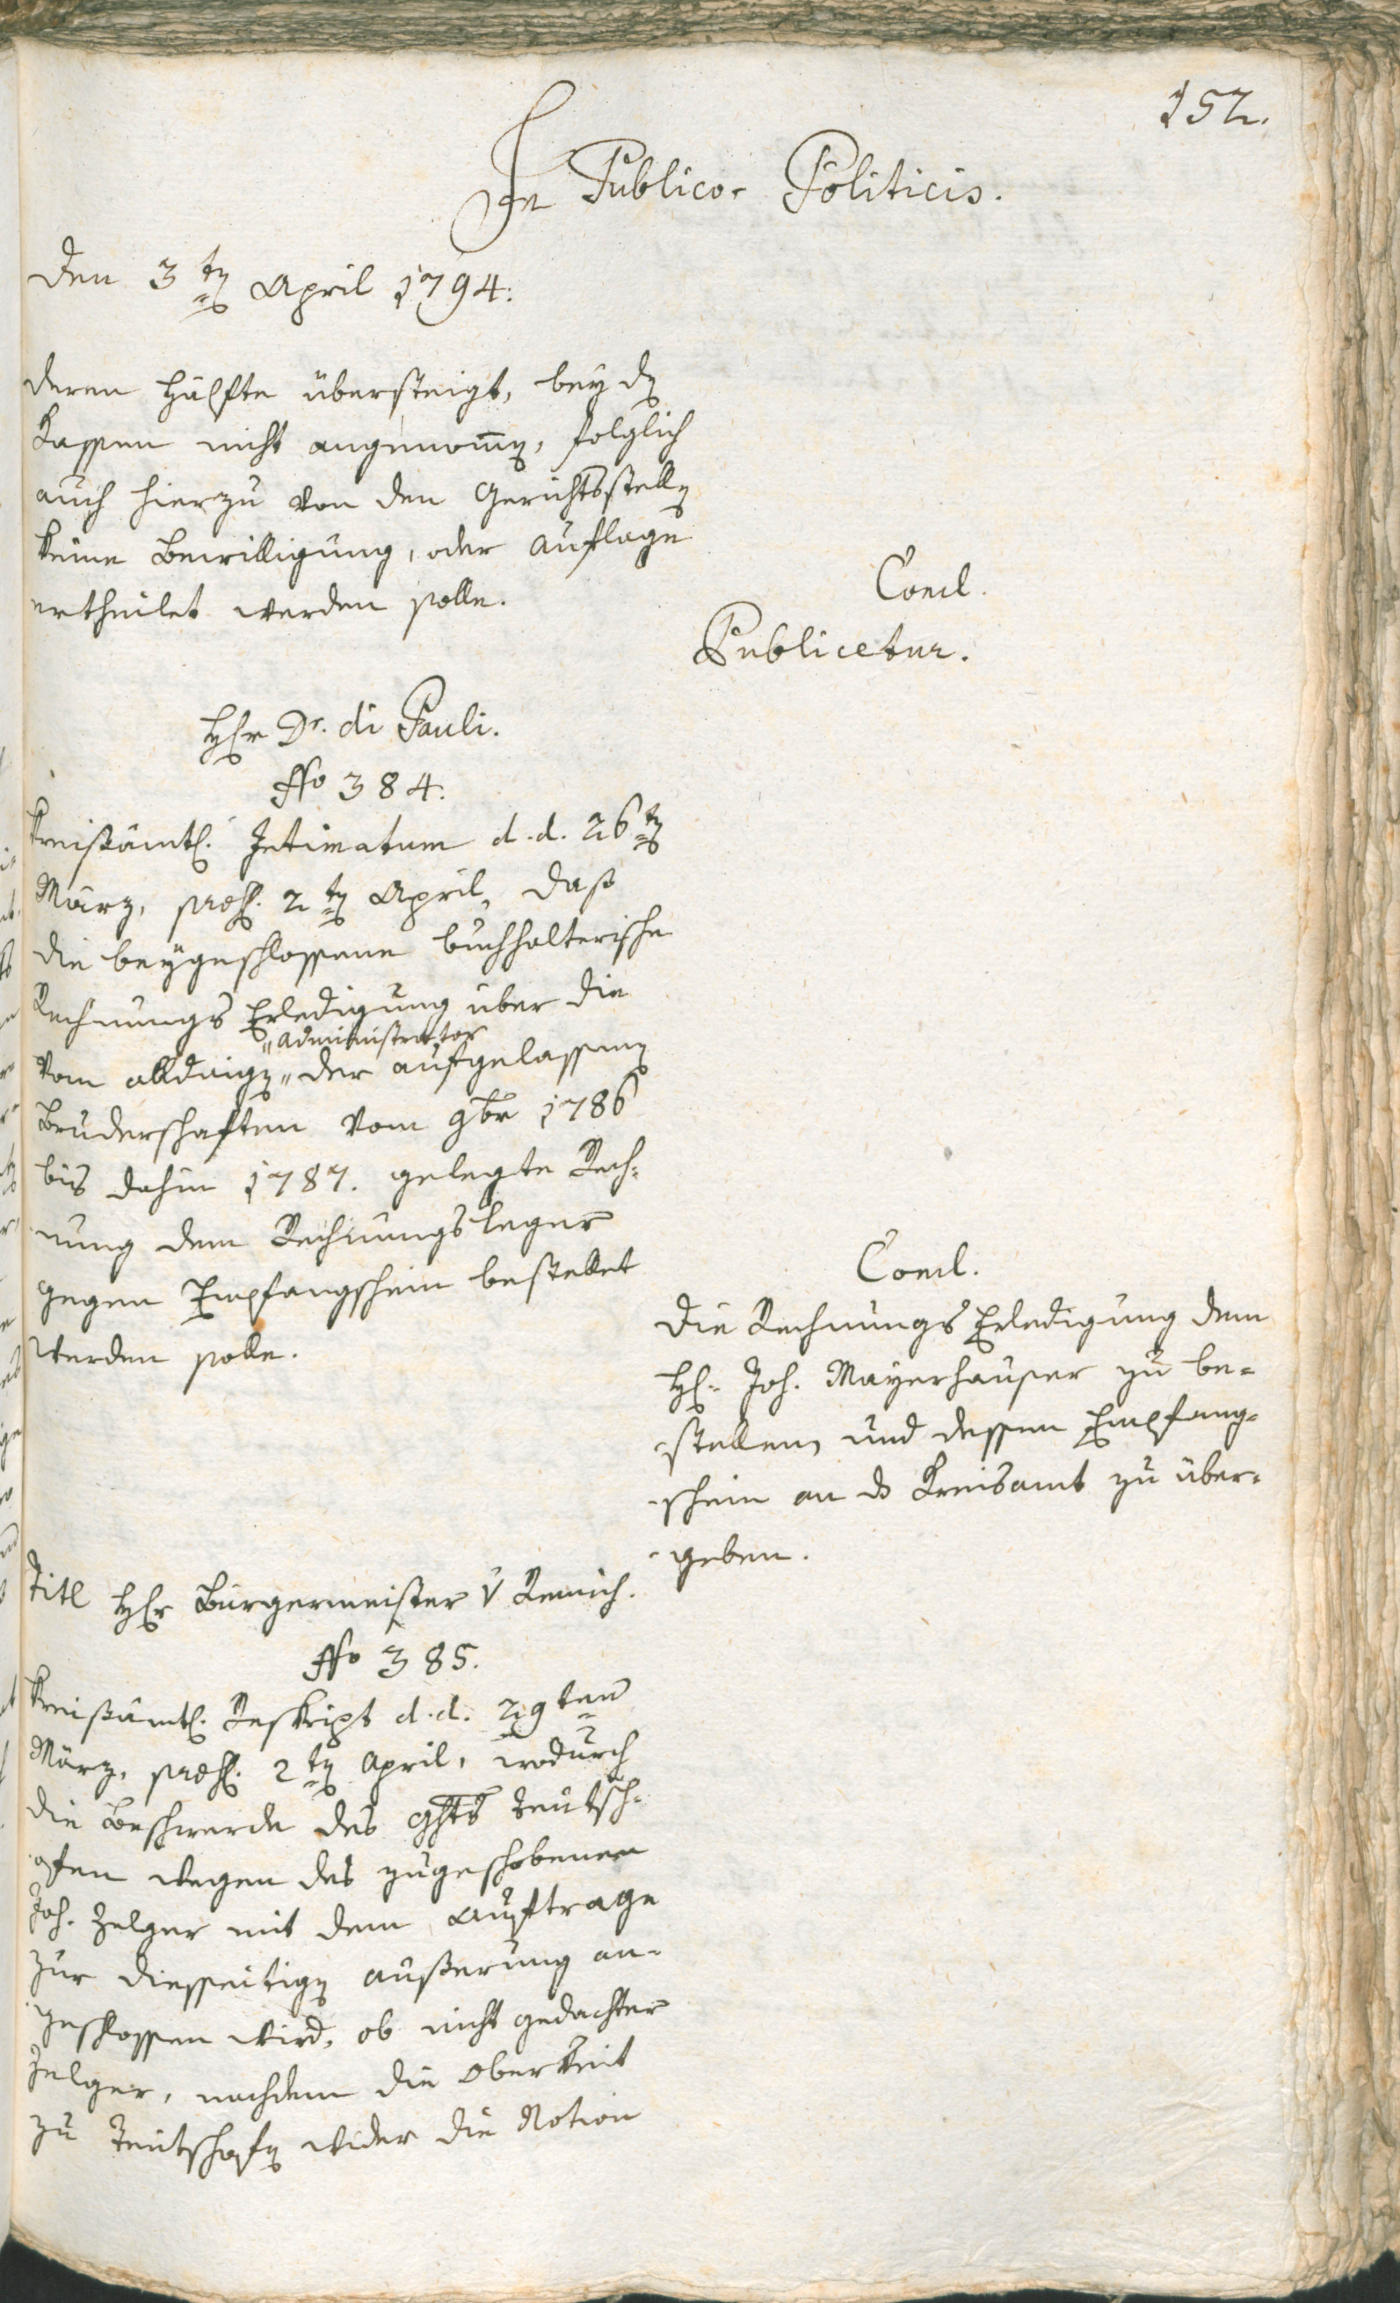 152.
In Publico-Politicis.
Den 3ten April 1794.
deren Hälfte übersteigt, bey den
Kassen nicht angenommen, folglich
auch hierzu von den Gerichtsstellen
keine Bewilligung, oder Auflage
ertheilet werden solle.
Concl.
Publicetur.
Herr Dr. di Pauli.
No 384.
Kreisämtl. Intimatum d. d. 26ten
März, praes. 2ten April, daß
die beygeschlossene buchhalterische
Rechnungs Erledigung über die
"Administrator
vom alldaigen " der aufgelassenen
Bruderschaften vom 9br 1786
bis dahin 1787. gelegte Rech-
nung dem Rechnungsleger
gegen Empfangschein bestellet
werden solle.
Concl.
Die Rechnungs Erledigung dem
H. Joh. Mayerhauser zu be-
stellen, und dessen Empfang-
schein an das Kreisamt zu über-
geben.
Titl Herr Bürgermeister v Remich.
No 385.
Kreisämtl. Reskript d. d. 29ten
März, praes. 2ten April, wodurch
die Beschwerde des Ghts Teutsch-
ofen wegen des zugeschobenen
Joh. Zelger mit dem Auftrage
zur diesseitigen Äußerung an-
geschlossen wird, ob nicht gedachter
Zelger, nachdem die Oberkeit
zu Teutschofen wider die Notion